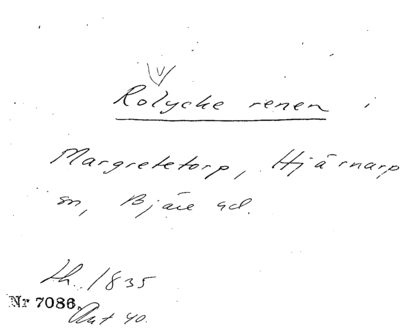 Rovlycke renen i
Margretetorp, Hjärnarp
sn, Bjäre hd.
Lh. 1835
Nr 7086.
Ant 40.